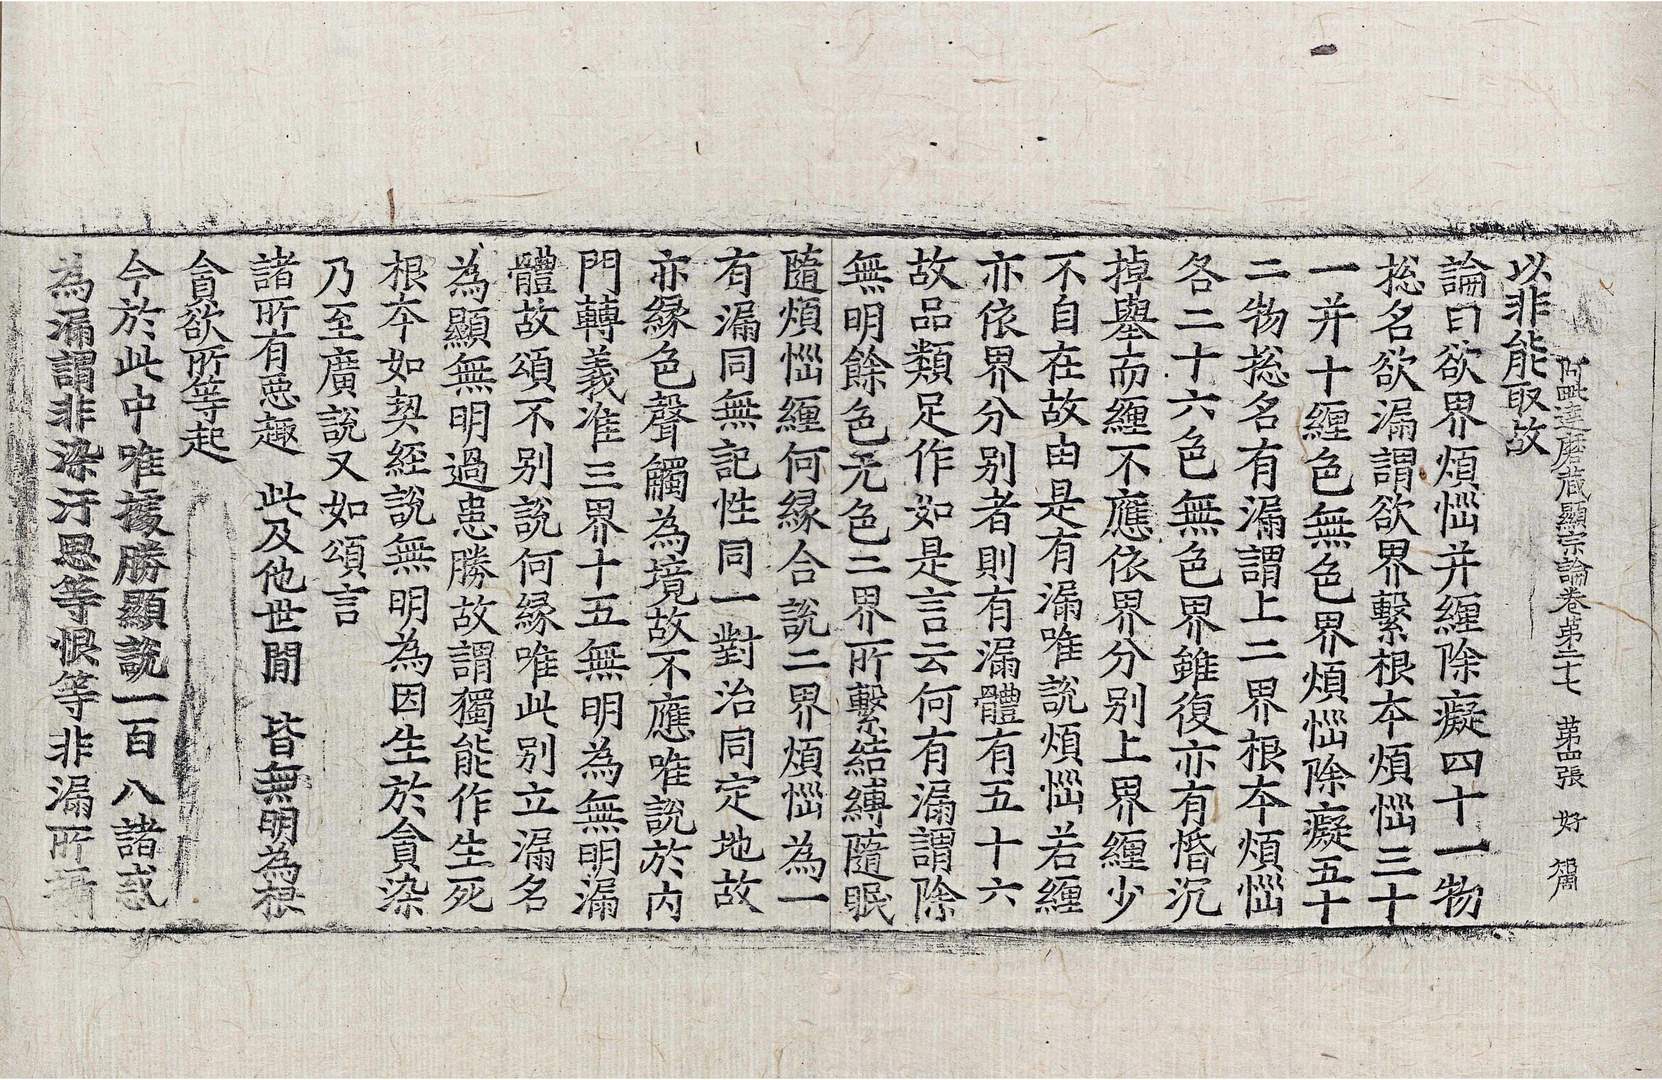 阿毗達磨藏顯宗論卷第二十七　第四張　好
以非能取故
論曰欲界煩惱并纏除癡四十一物
捴名欲漏謂欲界繫根本煩惱三十
一并十纏色無色界煩惱除癡五十
二物捴名有漏謂上二界根本煩惱
各二十六色無色界雖復亦有惛沉
掉舉而纏不應依界分别上界纏少
不自在故由是有漏唯說煩惱若纏
亦依界分别者則有漏體有五十六
故品類足作如是言云何有漏謂除
無明餘色无色二界所繫結縛隨眠
隨煩惱纏何緣合說二界煩惱為一
有漏同無記性同一對治同定地故
亦緣色聲觸為境故不應唯說於內
門轉義准三界十五無明為無明漏
體故頌不别說何緣唯此别立漏名
為顯無明過患勝故謂獨能作生死
根本如契經說無明為因生於貪染
乃至廣說又如頌言
諸所有惡趣　此及他世間　皆無明為根
貪欲所等起
今於此中唯據勝顯說一百八諸惑
為漏謂非染汙思等恨等非漏所攝